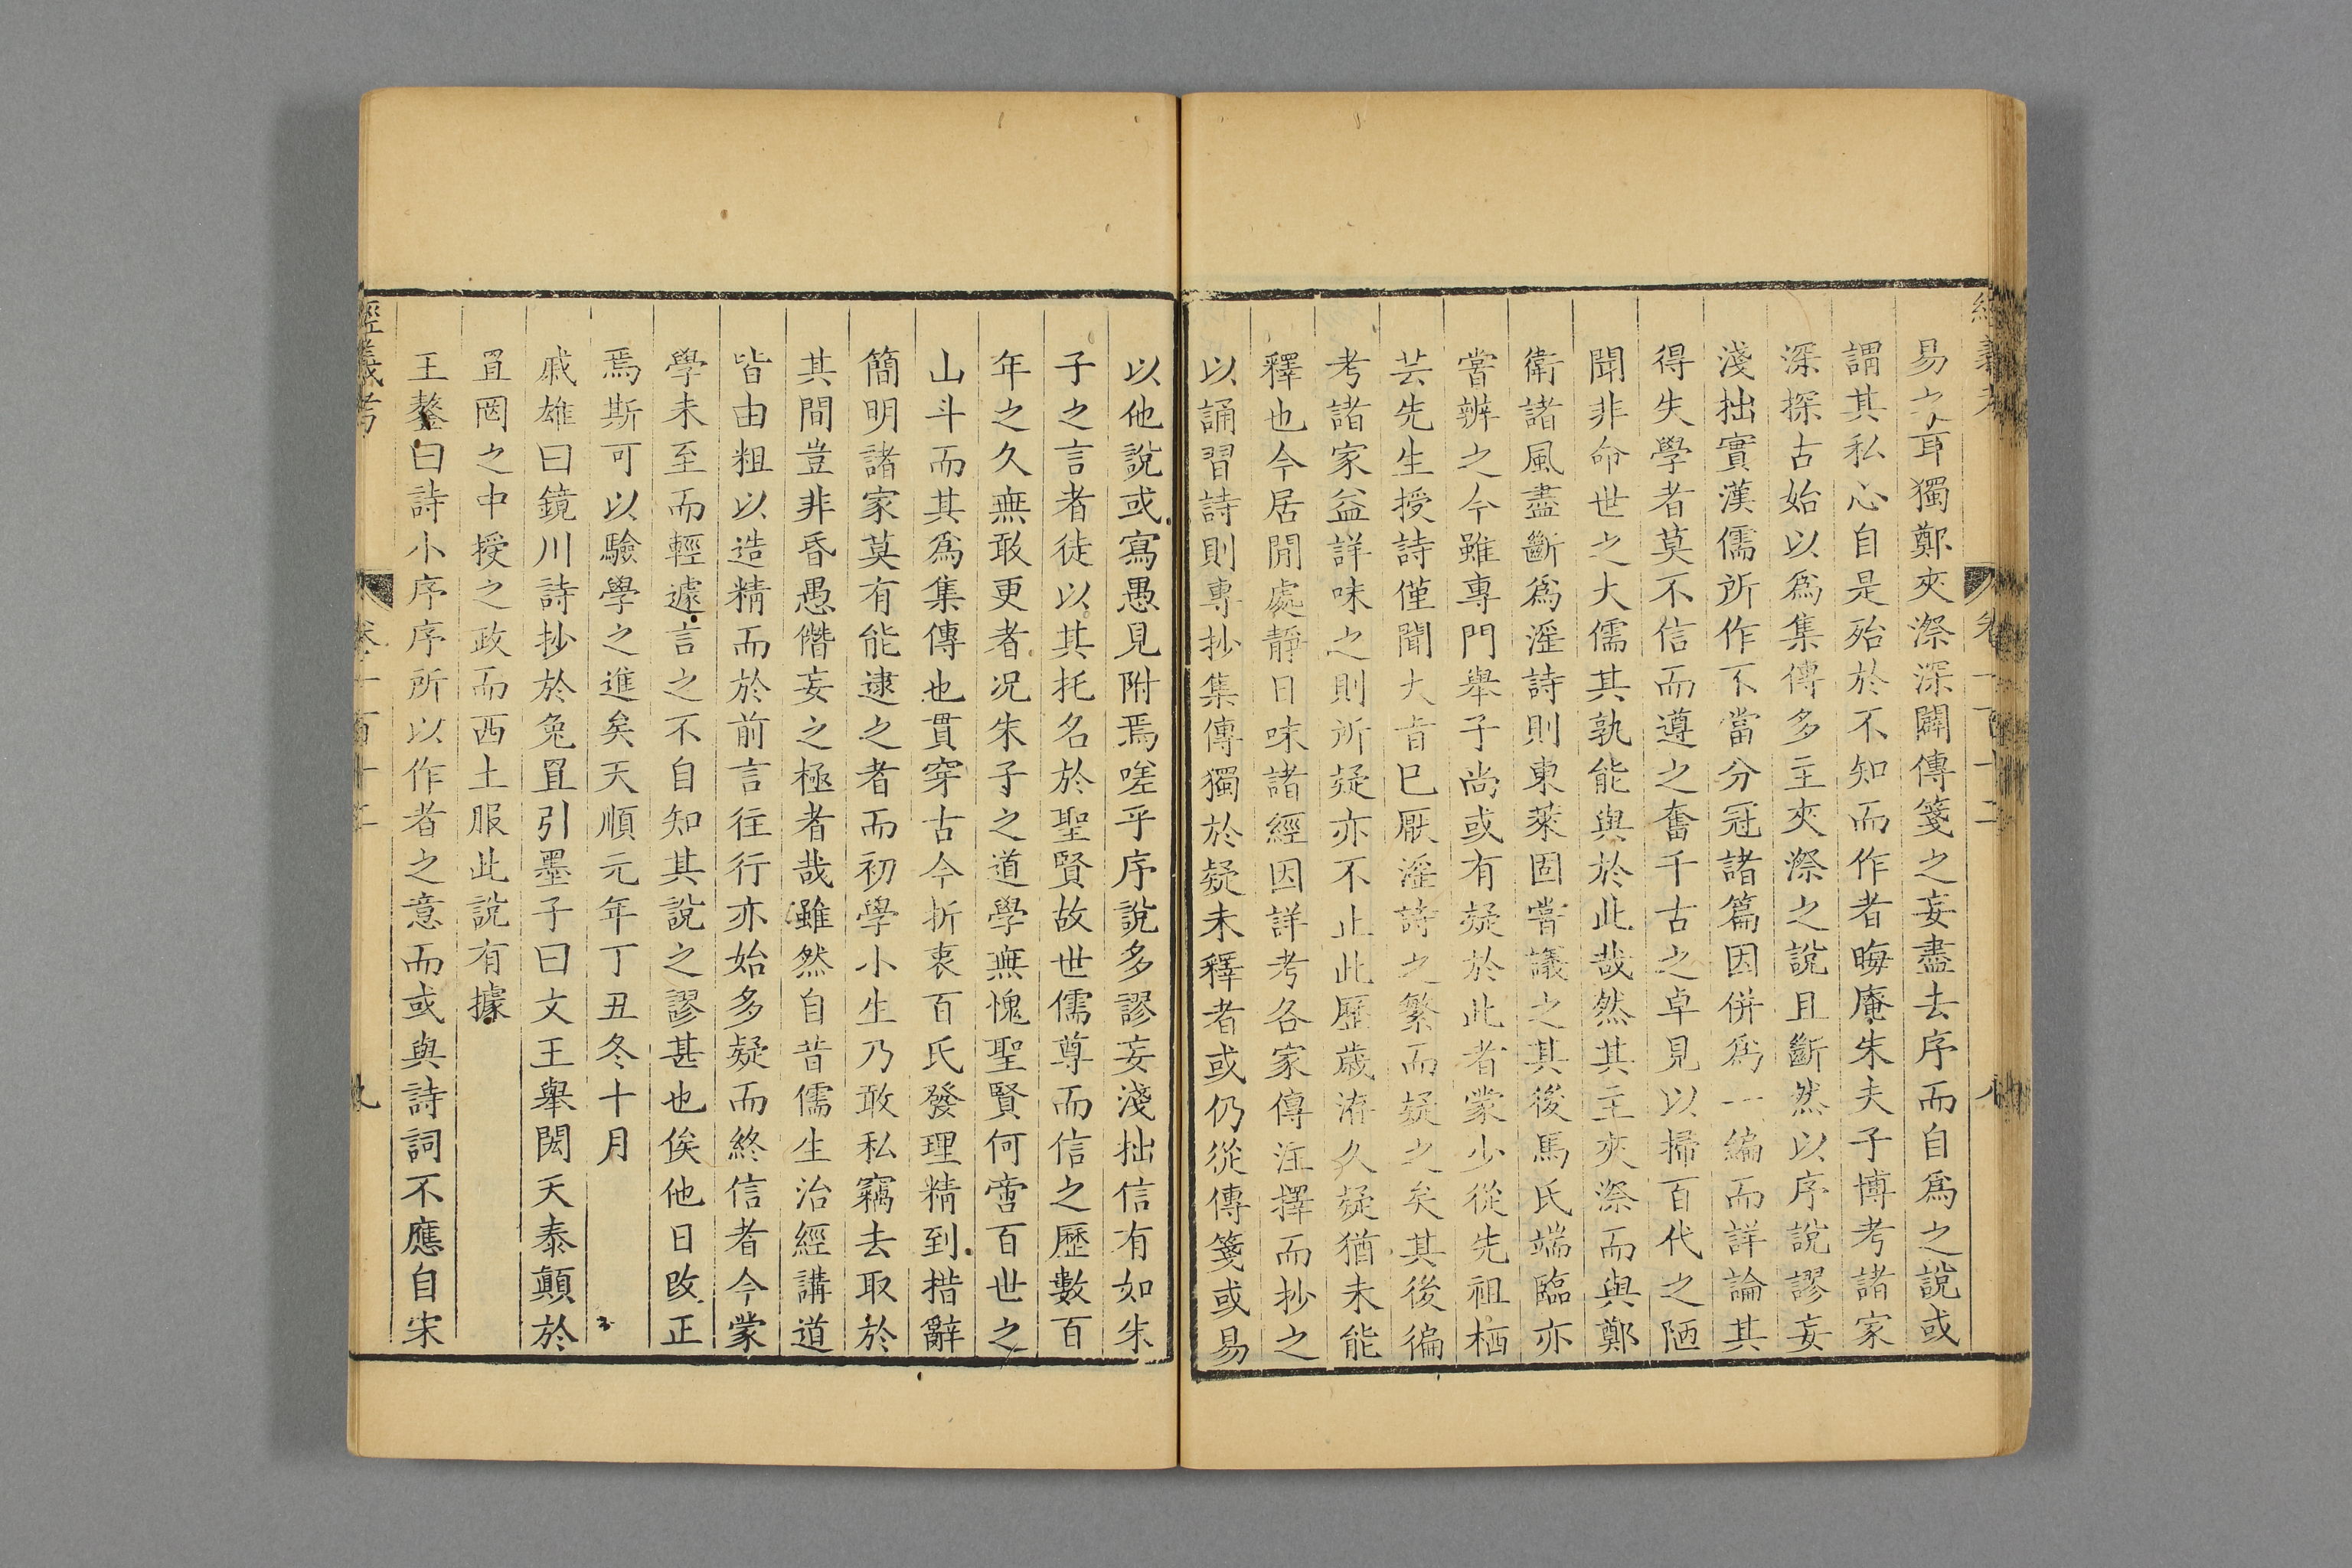 經義考 卷一百十二 八
易之耳獨鄭夾漈深闢傳箋之妄盡去序而自爲之說或
謂其私心自是殆於不知而作者晦庵朱夫子博考諸家
深探古始以爲集傳多主夾漈之說且斷然以序說謬妄
淺拙實漢儒所作不當分冠諸篇因併爲一編而詳論其
得失學者莫不信而遵之奮千古之卓見以掃百代之陋
聞非命世之大儒其孰能與於此哉然其主夾漈而與鄭
衛諸風盡斷爲滛詩則東萊固嘗議之其後馬氏端臨亦
嘗辨之今雖專門舉子尚或有疑於此者蒙少從先祖栖
芸先生授詩僅聞大旨已厭滛詩之繁而疑之矣其後徧
考諸家益詳味之則所疑亦不止此歷歲滋久疑猶未能
釋也今居閒處靜日味諸經因詳考各家傳注擇而抄之
以誦習詩則專抄集傳獨於疑未釋者或仍從傳箋或易
以他說或寫愚見附焉嗟乎序說多謬妄淺拙信有如朱
子之言者徒以其托名於聖賢故世儒尊而信之歷數百
年之久無敢更者况朱子之道學無愧聖賢何啻百世之
山斗而其爲集傳也貫穿古今折衷百氏發理精到措辭
簡明諸家莫有能逮之者而初學小生乃敢私竊去取於
其間豈非昏愚僭妄之極者哉雖然自昔儒生治經講道
皆由粗以造精而於前言往行亦始多疑而終信者今蒙
學未至而輕遽言之不自知其說之謬甚也俟他日改正
焉斯可以驗學之進矣天順元年丁丑冬十月
戚雄曰鏡川詩抄於兔罝引墨子曰文王舉閎夭泰顛於
罝罔之中授之政而西土服此說有據
王鏊曰詩小序序所以作者之意而或與詩詞不應自宋
經義考 卷一百十二 九